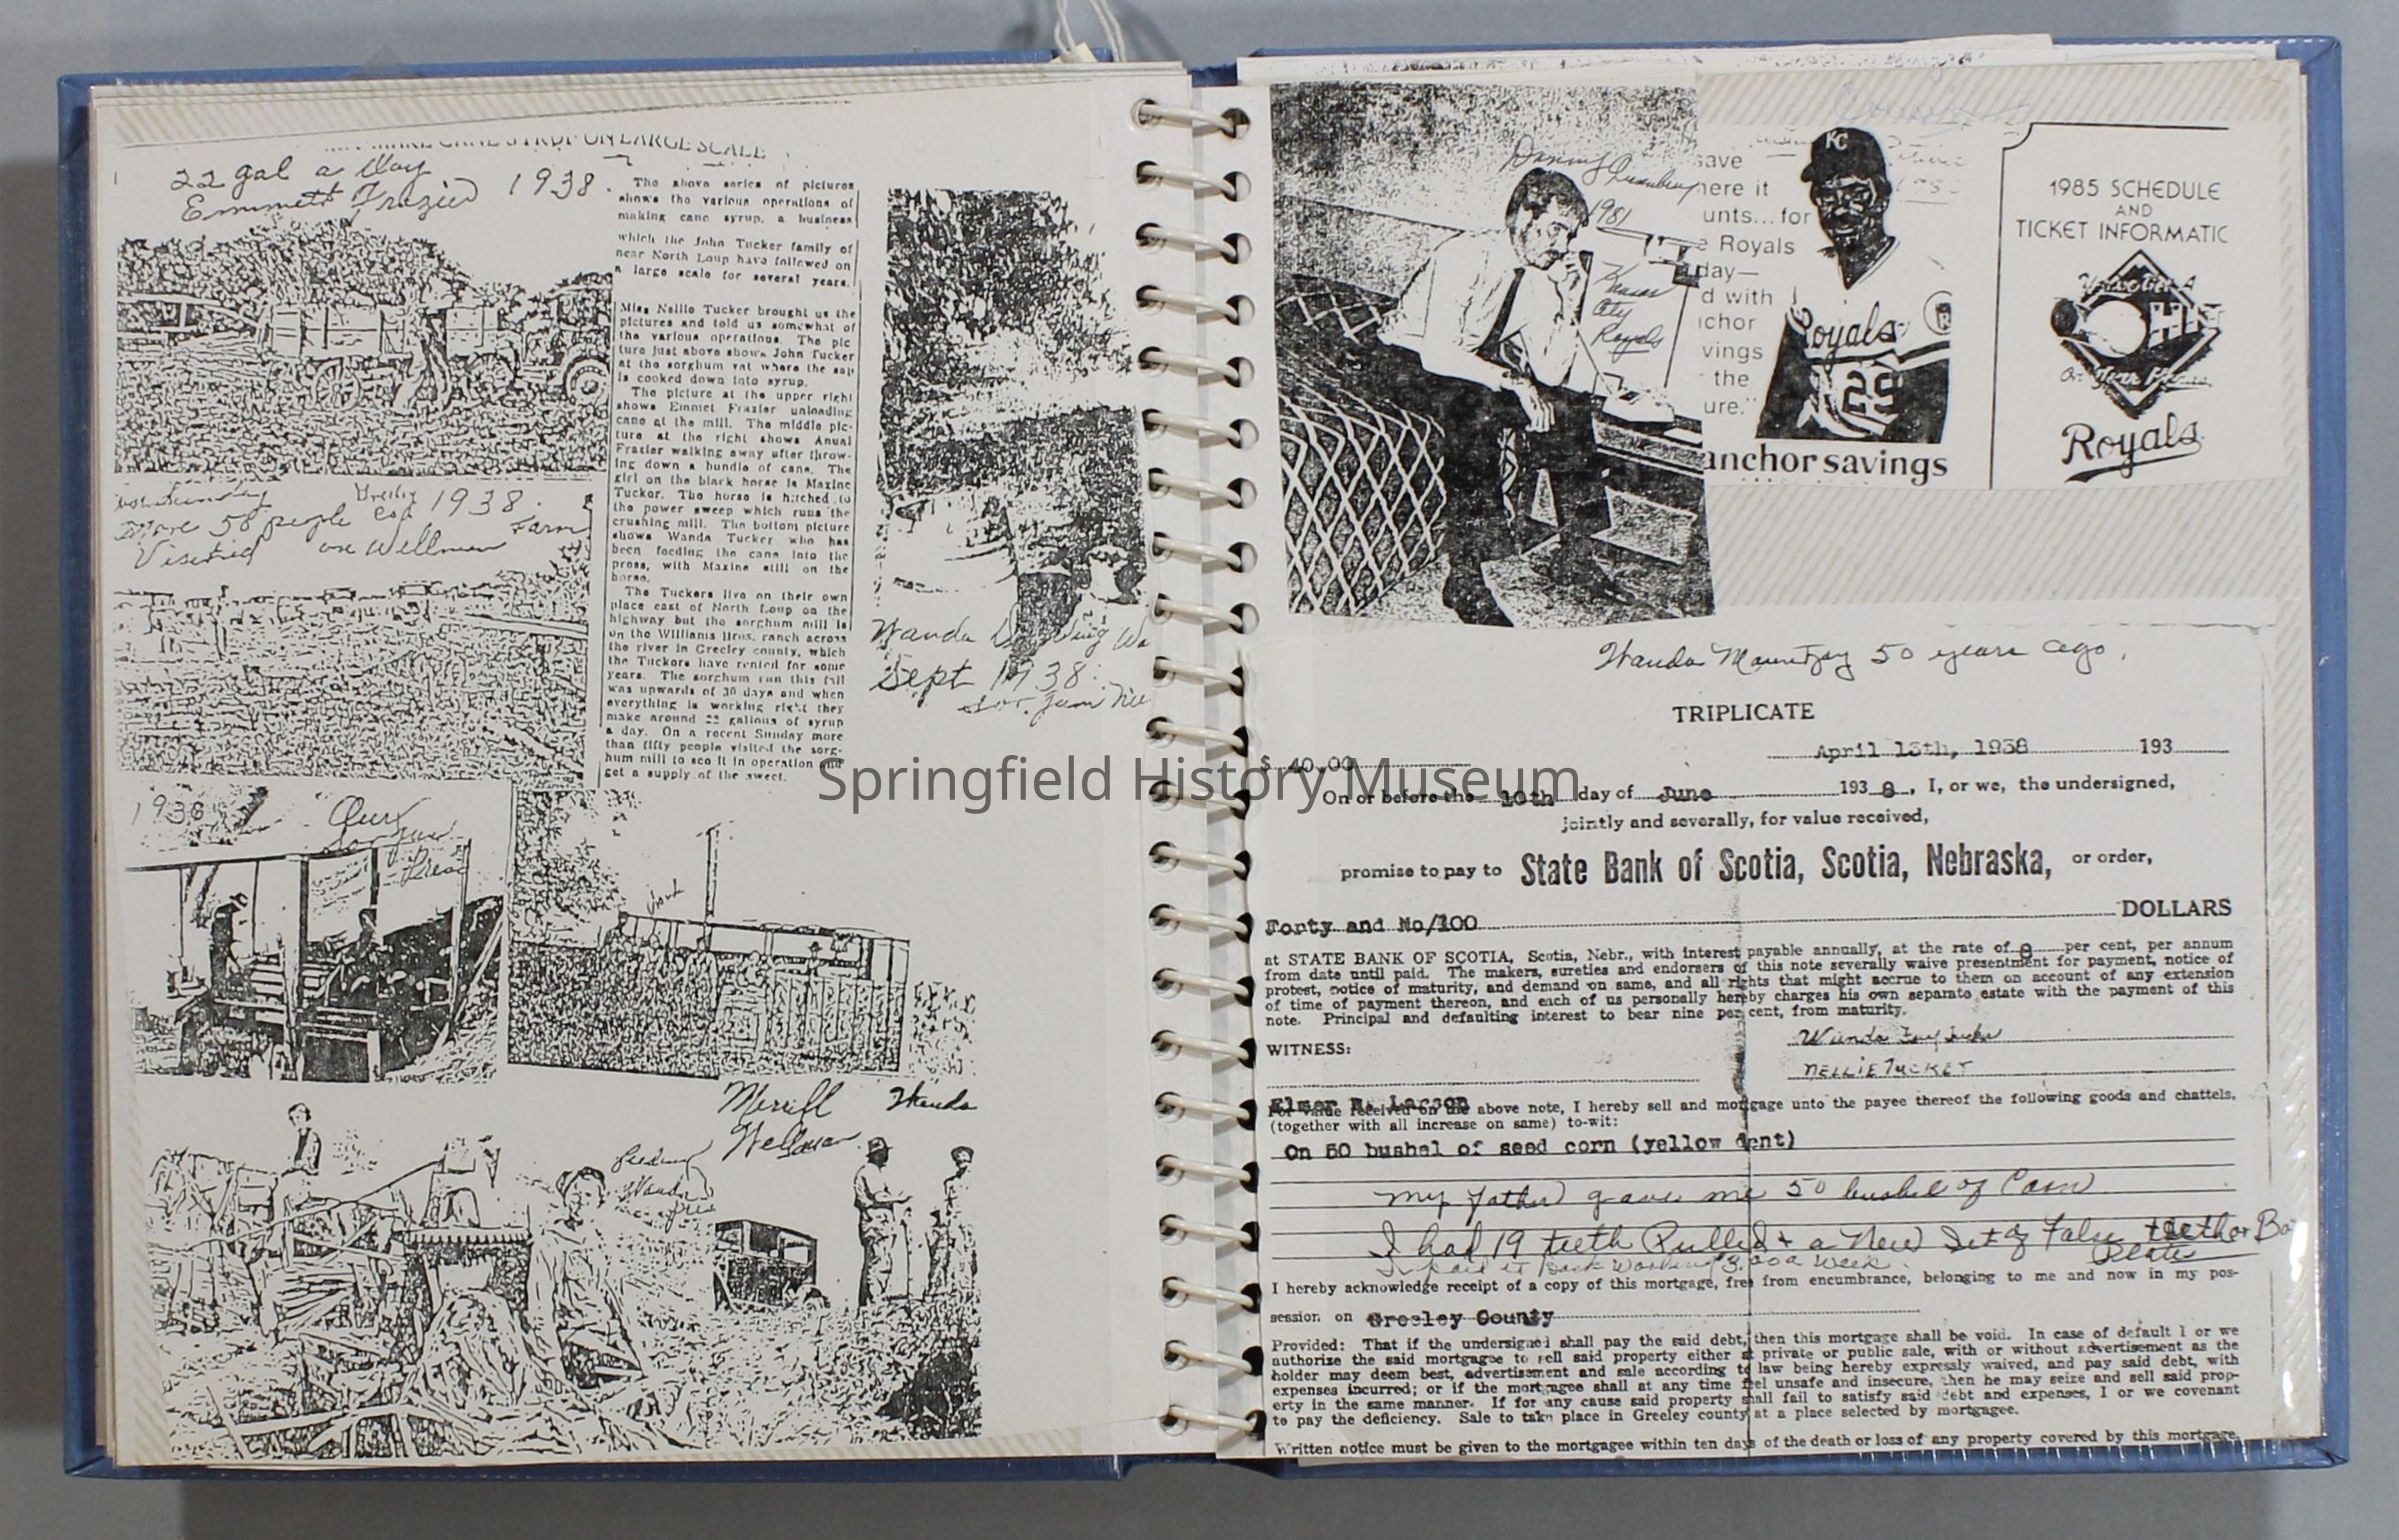 MAKE CANE SYRUP ON LARGE SCALE
22 gal a day
Emmett Frazier 1938.
The above series of pictures
shows the various operations of
making cane syrup, a business
which the John Tucker family of
near North Loup have followed on
a large scale for several years.
Miss Nellie Tucker brought us the
pictures and told us somewhat of
the various operations. The pic
ture just above shows John Tucker
at the sorghum vat where the sap
is cooked down into syrup.
The picture at the upper right
shows Emmet Frazier unloading
cane at the mill. The middle pic-
ture at the right shows Anual
Frazier walking away after throw-
ing down a bundle of cane. The
girl on the black horse is Maxine
Tucker. The horse is hitched to
the power sweep which runs the
crushing mill. The bottom picture
shows Wanda Tucker who has
been feeding the cane into the
press, with Maxine still on the
horse.
The Tuckers live on their own
place east of North Loup on the
highway but the sorghum mill is
on the Williams Bros. ranch across
the river in Greeley county, which
the Tuckers have rented for some
years. The sorghum run this fall
was upwards of 30 days and when
everything is working right they
make around 22 gallons of syrup
a day. On a recent Sunday more
than fifty people visited the sorg-
hum mill to see it in operation and
get a supply of the sweet.
Sunday Greeley Co 1938.
more 50 people Farm
Visited on Wellman
Wanda
Sept 1938.
1938 Our
Press
Merrill Wanda
Wellman
feeding
Wanda
Danny Quisenberry
1981
Kansas
City
Royals
save
here it
unts...for
e Royals
day—
d with
nchor
vings
the
ure."
KC
Royals
25
anchor savings
1985 SCHEDULE
AND
TICKET INFORMATIC
Royals
Wanda Mountjoy 50 years ago.
TRIPLICATE
April 13th, 1938 193
$ 40.00
On or before the 10th day of June 193 8, I, or we, the undersigned,
jointly and severally, for value received,
promise to pay to State Bank of Scotia, Scotia, Nebraska, or order,
Forty and No/100 DOLLARS
at STATE BANK OF SCOTIA, Scotia, Nebr., with interest payable annually, at the rate of 9 per cent, per annum
from date until paid. The makers, sureties and endorsers of this note severally waive presentment for payment, notice of
protest, notice of maturity, and demand on same, and all rights that might accrue to them on account of any extension
of time of payment thereon, and each of us personally hereby charges his own separate estate with the payment of this
note. Principal and defaulting interest to bear nine per cent, from maturity.
Wanda Fay Tucker
WITNESS:
NELLIE TUCKER
Elmer R. Larson
For value received on the above note, I hereby sell and mortgage unto the payee thereof the following goods and chattels,
(together with all increase on same) to-wit:
On 50 bushel of seed corn (yellow dent)
My father gave me 50 bushel of Corn
I had 19 teeth Pulled + a New Set of False teeth
Plate
I paid it back working 3.00 a week.
I hereby acknowledge receipt of a copy of this mortgage, free from encumbrance, belonging to me and now in my pos-
session on Greeley County
Provided: That if the undersigned shall pay the said debt, then this mortgage shall be void. In case of default I or we
authorize the said mortgagee to sell said property either at private or public sale, with or without advertisement as the
holder may deem best, advertisement and sale according to law being hereby expressly waived, and pay said debt, with
expenses incurred; or if the mortgagee shall at any time feel unsafe and insecure, then he may seize and sell said prop-
erty in the same manner. If for any cause said property shall fail to satisfy said debt and expenses, I or we covenant
to pay the deficiency. Sale to take place in Greeley county at a place selected by mortgagee.
Written notice must be given to the mortgagee within ten days of the death or loss of any property covered by this mortgage.
Springfield History Museum